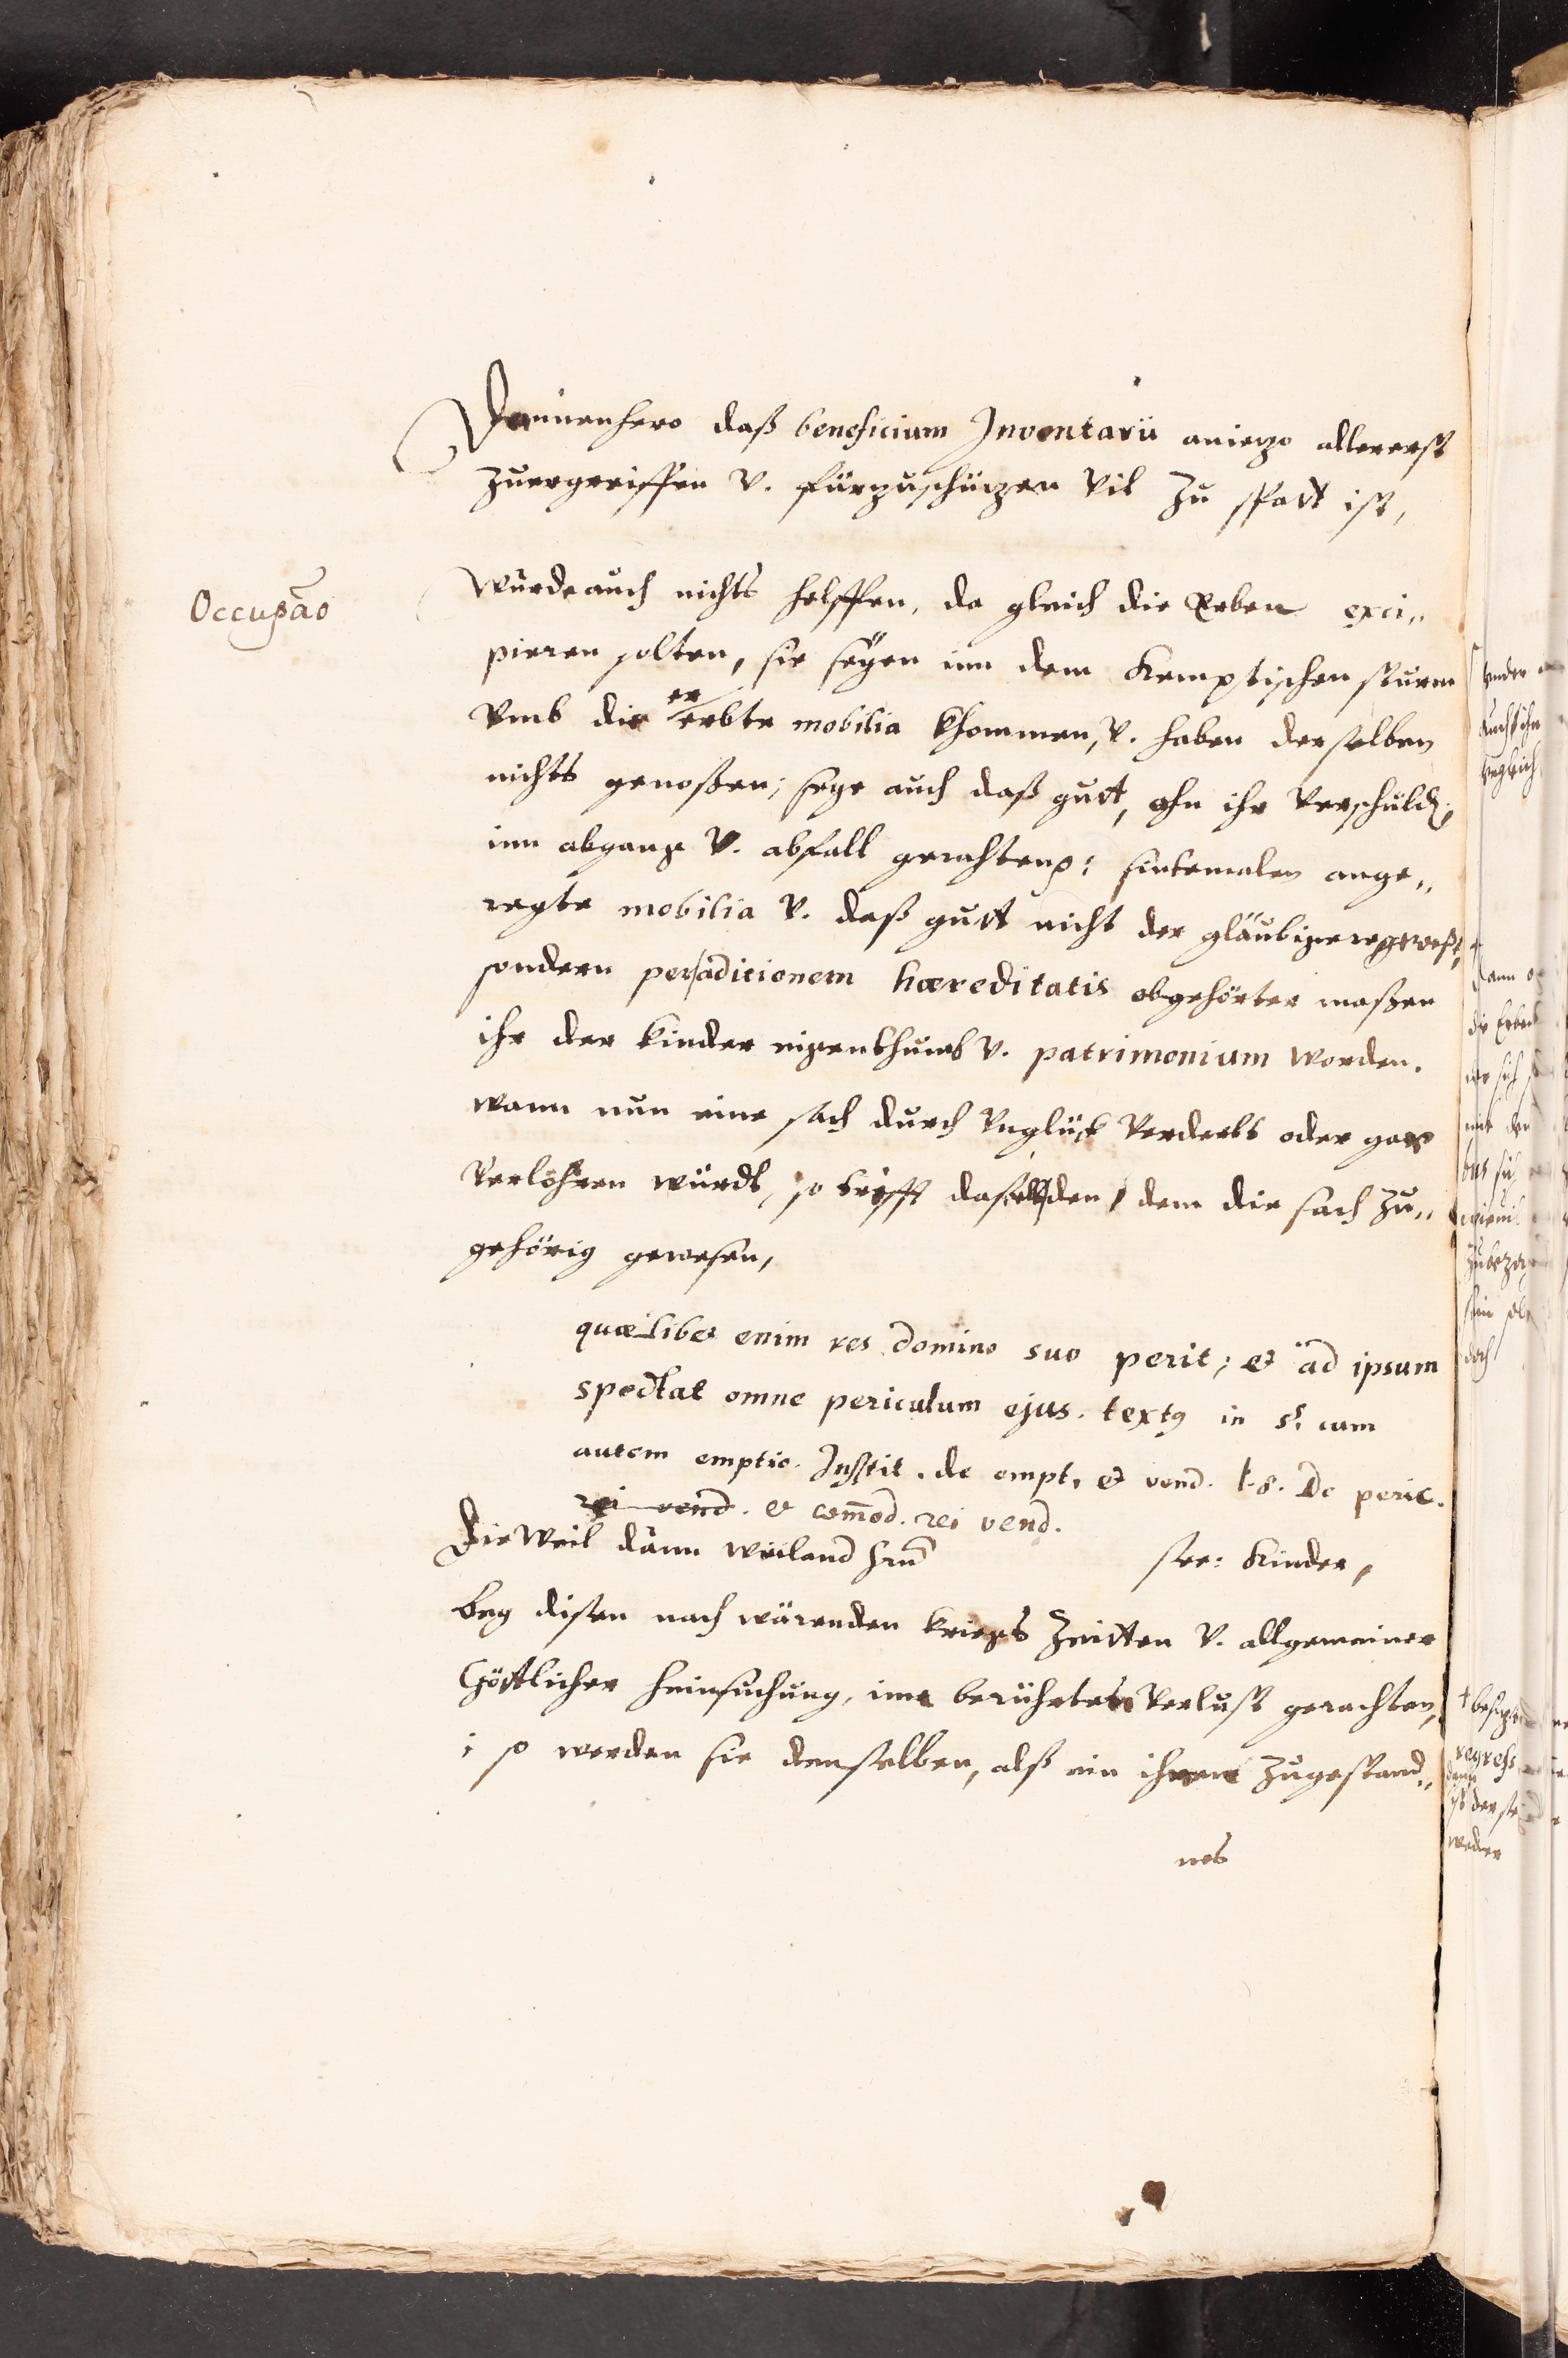 Dannenhero daß beneficium Inventarii aniezo allererst
zuergreiffen v. fürzuschüzen vil zu spatt ist,
Occupāo
würde auch nichts helffen, da gleich die Erben exci„
pieren solten, sie seyen inn dem Kemptischen sturm
vmb die ererbte mobilia khommen, v. haben derselben
nichts genoßen; seye auch daß gutt, ohn ihr verschuld
inn abgang v. abfall gerahten: sintemalen ange„
regte mobilia v. daß gutt nicht der gläubiger geweßt,
sondern per aditionem hæreditatis obgehörter maßen
ihr der kinder eigenthumb v. patrimonium worden.
wann nun eine sach durch vnglück verderbt oder gar
verlohren würdt, so trifft daßelb den, dem die sach zu„
gehörig gewesen,
quælibet enim res domino suo perit; et ad ipsum
spectat omne periculum ejus. textꝯ in §. cum
autem emptio. Instit. de empt. et vend. l. 8. De peric.
rei vend. et com̄od. rei vend.
Dieweil dann weiland hrn seel: Kinder,
bey disen noch wärenden kriegs Zeitten v. allgemainer
Göttlicher heimsuchung, inn berührten verlust gerahten,
so werden sie denselben, alß ein ihnen zugestand„
nes